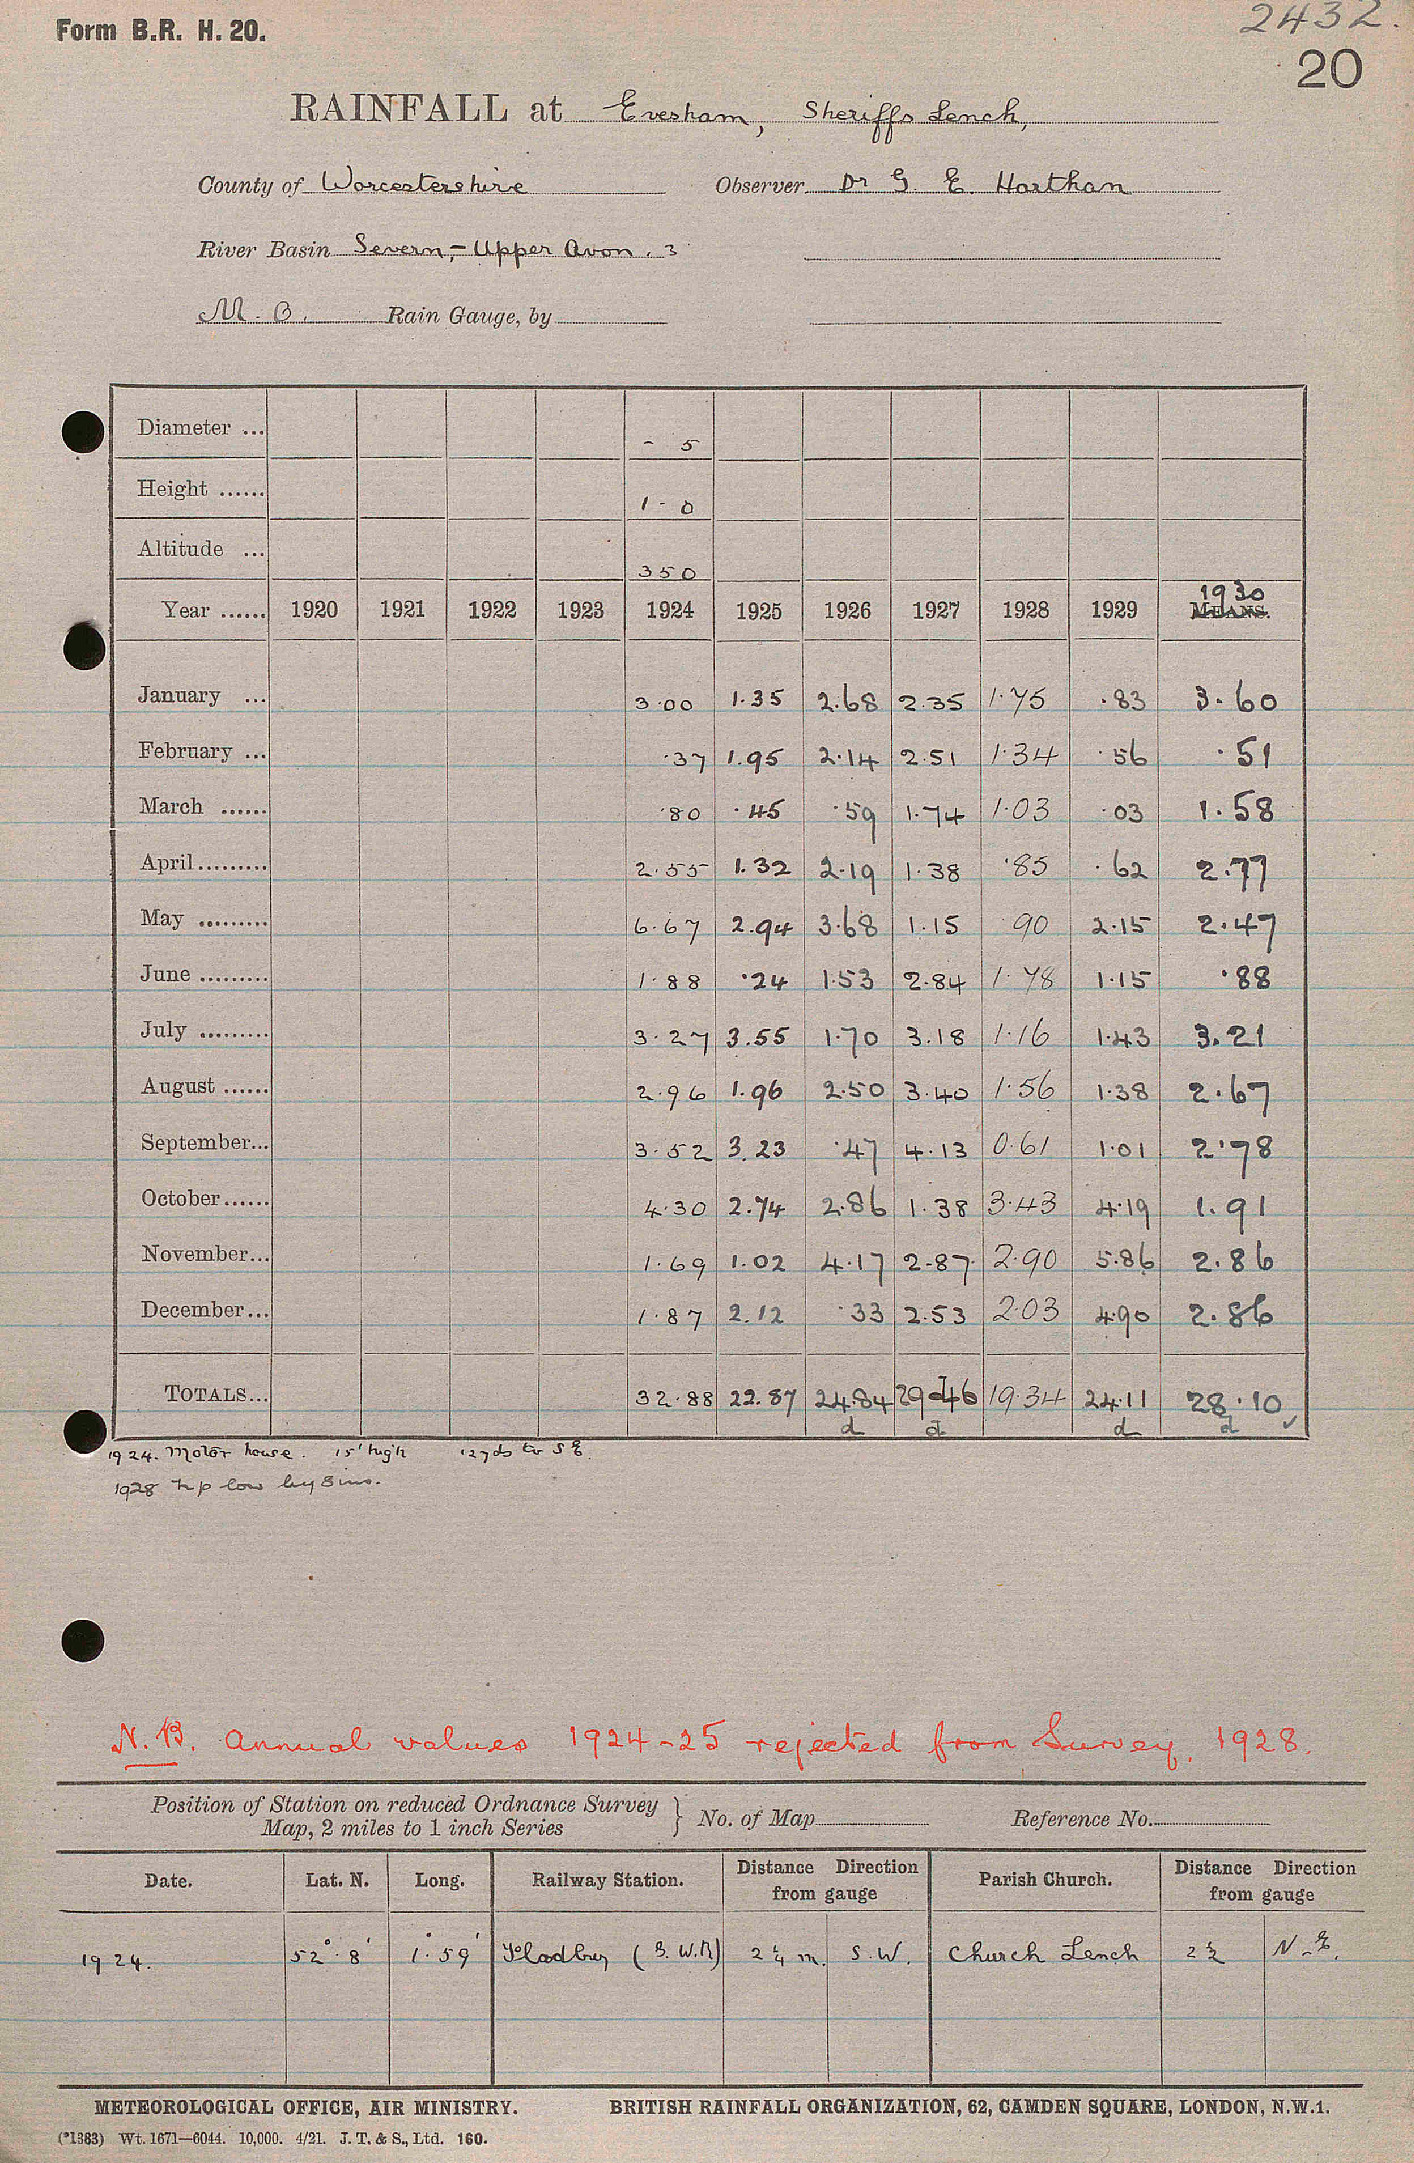 2432.
Form B.R. H. 20.
20
RAINFALL at Evesham, Sheriffs Lench,
County of Worcestershire Observer Dr G. E. Harthan
River Basin Severn,- Upper Avon . 3
M. O. Rain Gauge, by
Diameter ... - 5
Height ...... 1 - 0
Altitude ... 350
1930
Year ...... 1920 1921 1922 1923 1924 1925 1926 1927 1928 1929 MEANS.
January ... 3.00 1.35 2.68 2.35 1.75 .83 3.60
February ... .37 1.95 2.14 2.51 1.34 .56 .51
March ...... .80 .45 .59 1.74 1.03 .03 1.58
April ......... 2.55 1.32 2.19 1.38 .85 .62 2.77
May ......... 6.67 2.94 3.68 1.15 .90 2.15 2.47
June ......... 1.88 .24 1.53 2.84 1.78 1.15 .88
July ......... 3.27 3.55 1.70 3.18 1.16 1.43 3.21
August ...... 2.96 1.96 2.50 3.40 1.56 1.38 2.67
September... 3.52 3.23 .47 4.13 0.61 1.01 2.78
October...... 4.30 2.74 2.86 1.38 3.43 4.19 1.91
November... 1.69 1.02 4.17 2.87 2.90 5.86 2.86
December... 1.87 2.12 .33 2.53 2.03 4.90 2.86
TOTALS... 32.88 22.87 24.84 29.46 19.34 24.11 28.10
d d d d
1924. Motor house. 15' high 12 yds to S E.
1928 low by 8 ins.
N.B. Annual values 1924-25 rejected from Survey. 1928.
Position of Station on reduced Ordnance Survey
Map, 2 miles to 1 inch Series } No. of Map Reference No.
Date. Lat. N. Long. Railway Station. Distance Direction from gauge Parish Church. Distance Direction from gauge
1924. 52° 8' 1° 59' Fladbury (G.W.R) 2¼ m. S.W. Church Lench 2½ N.E.
METEOROLOGICAL OFFICE, AIR MINISTRY. BRITISH RAINFALL ORGANIZATION, 62, CAMDEN SQUARE, LONDON, N.W.1.
(*1383) Wt. 1671—6044. 10,000. 4/21. J. T. & S., Ltd. 160.